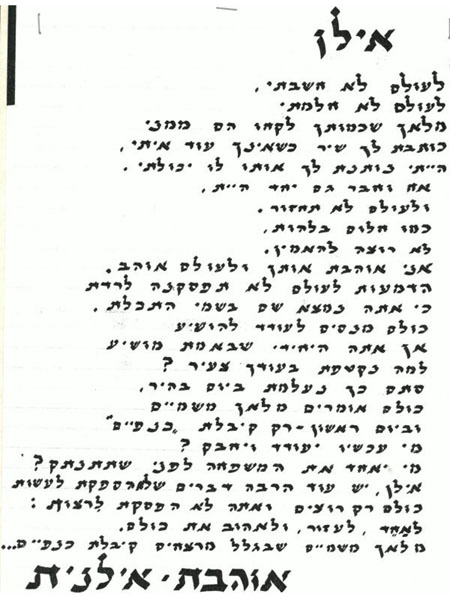 אילן
לעולם לא חשבתי,
לעולם לא חלמתי
מלאך שכמותך לקחו הם ממני
כותבת לך שיר כשאינך עוד איתי,
הייתי נותנת לך אותו לו יכולתי.
אח וחבר גם יחד היית,
ולעולם לא תחזור.
כמו חלום בלהות,
לא רוצה להאמין.
אני אוהבת אותך ולעולם אוהב.
הדמעות לעולם לא תפסקנה לרדת
כי אתה נמצא שם בשמי התכלת.
כולם מנסים לעודד להושיע
אך אתה היחידי שבאמת מושיע
למה נקטפת בעודך צעיר?
סתם כך נעלמת ביום בהיר,
כולם אומרים מלאך משמיים
וביום ראשון-רק קיבלת "כנפיים"
מי עכשיו יעודד ויחבק?
מי יאחד את המשפחה לפני שתתנתק?
אילן, יש עוד הרבה דברים שלא הספקת לעשות
כולם רק רוצים ואתה לא הפסקת לרצות:
לאחד, לעזור, ולאהוב את כולם.
מלאך משמיים שבגלל מרצחים קיבלת כנפיים...
אוהבת - אילנית